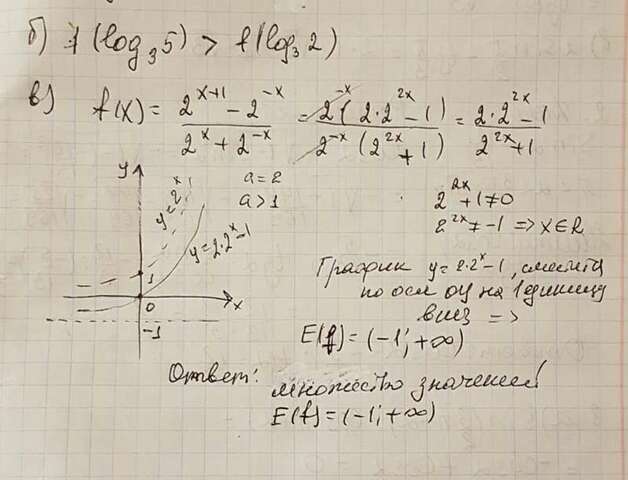 б) f(log₃5) > f(log₃2)
в) f(x) = (2^(x+1) − 2^(−x))/(2^x + 2^(−x)) = 2^(−x)(2·2^(2x) − 1)/2^(−x)(2^(2x) + 1) = (2·2^(2x) − 1)/(2^(2x) + 1)
y
y = 2^x
a = 2
a > 1
y = 2·2^x − 1
1
0
x
−1
2^(2x) + 1 ≠ 0
2^(2x) ≠ −1 => x ∈ R
График y = 2·2^x − 1, смещён
по оси оу на 1 единицу
вниз =>
E(f) = (−1; +∞)
Ответ: множество значений
E(f) = (−1; +∞)